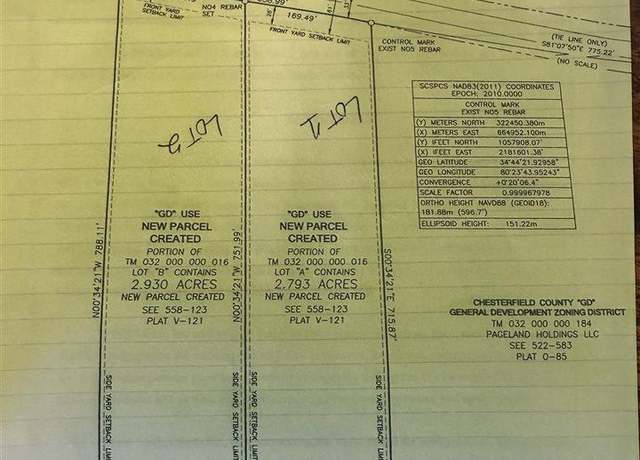 FRONT YARD
SETBACK LIMIT
NO4 REBAR
SET
169.49'
FRONT YARD SETBACK LIMIT
CONTROL MARK
EXIST NO5 REBAR
(TIE LINE ONLY)
S81°07'50"E 775.22'
(NO SCALE)
SCSPCS NAD83(2011) COORDINATES
EPOCH: 2010.0000
CONTROL MARK
EXIST NO5 REBAR
(Y) METERS NORTH 322450.380m
(X) METERS EAST 664952.100m
(Y) IFEET NORTH 1057908.07'
(X) IFEET EAST 2181601.38'
GEO LATITUDE 34°44'21.92958"
GEO LONGITUDE 80°23'43.95243"
CONVERGENCE +0°20'06.4"
SCALE FACTOR 0.999967978
ORTHO HEIGHT NAVD88 (GEOID18):
181.88m (596.7')
ELLIPSOID HEIGHT: 151.22m
LOT 2
LOT 1
N00°34'21"W 788.11'
"GD" USE
NEW PARCEL
CREATED
PORTION OF
TM 032 000 000 016
LOT "B" CONTAINS
2.930 ACRES
NEW PARCEL CREATED
SEE 558-123
PLAT V-121
N00°34'21"W 751.99'
"GD" USE
NEW PARCEL
CREATED
PORTION OF
TM 032 000 000 016
LOT "A" CONTAINS
2.793 ACRES
NEW PARCEL CREATED
SEE 558-123
PLAT V-121
S00°34'21"E 715.87'
CHESTERFIELD COUNTY "GD"
GENERAL DEVELOPMENT ZONING DISTRICT
TM 032 000 000 184
PAGELAND HOLDINGS LLC
SEE 522-583
PLAT O-85
SIDE YARD SETBACK LIMIT
SIDE YARD SETBACK LIMIT
SIDE YARD SETBACK LIMIT
SIDE YARD SETBACK LIMIT